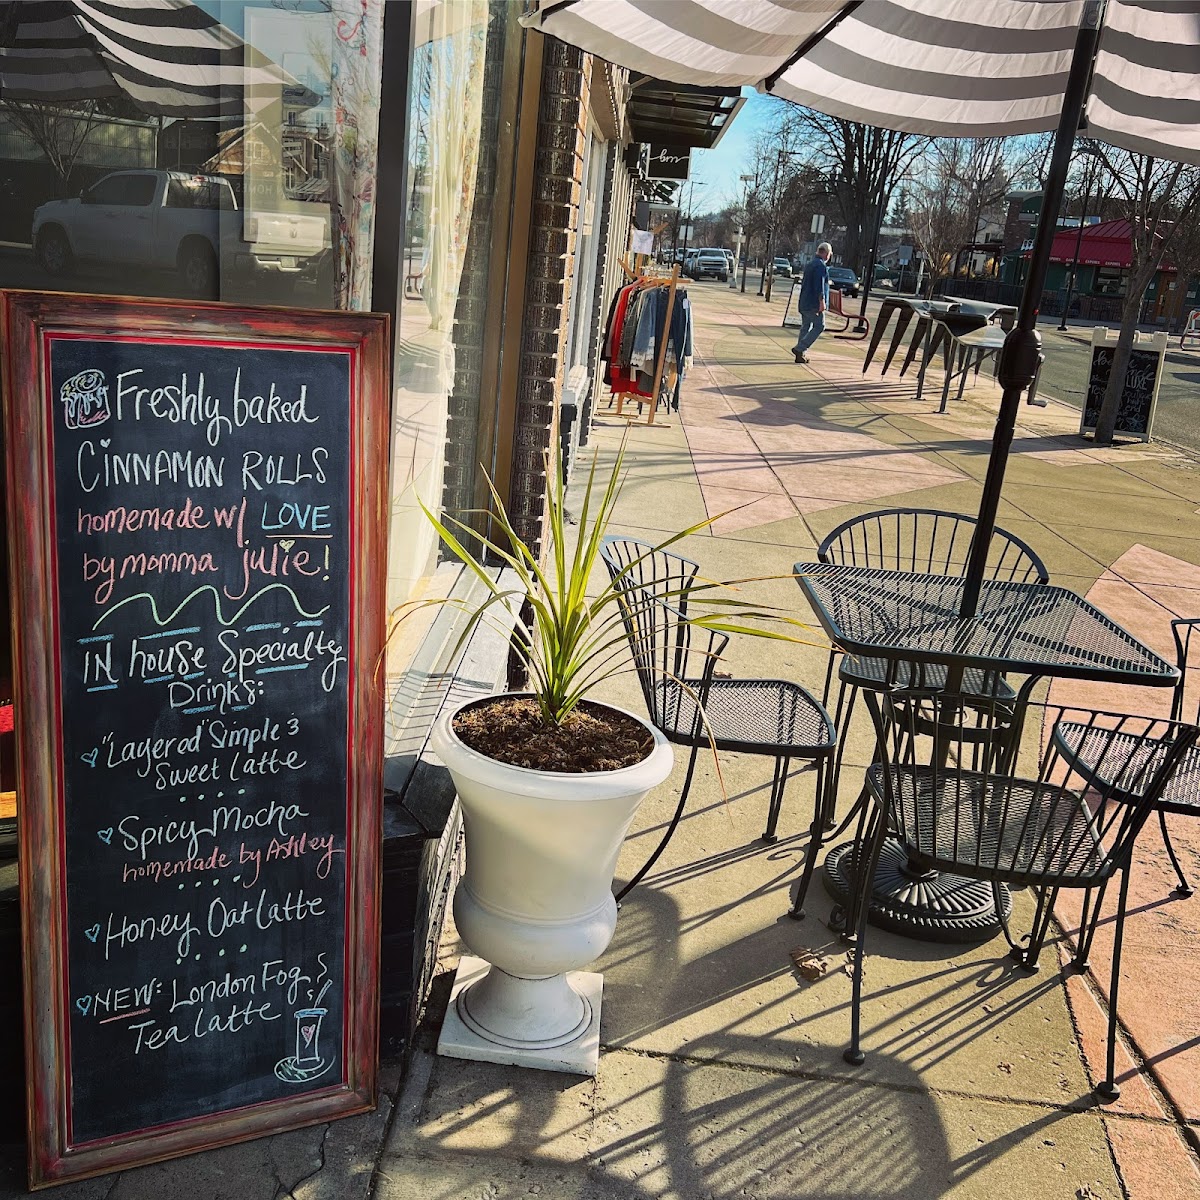 Freshly baked
CINNAMON ROLLS
homemade w/ LOVE
by momma julie!
IN house Specialty
Drinks:
"Layered" Simple 3
Sweet Latte
Spicy Mocha
homemade by Ashley
Honey Oat Latte
NEW: London Fog
Tea Latte
bm
LUXE